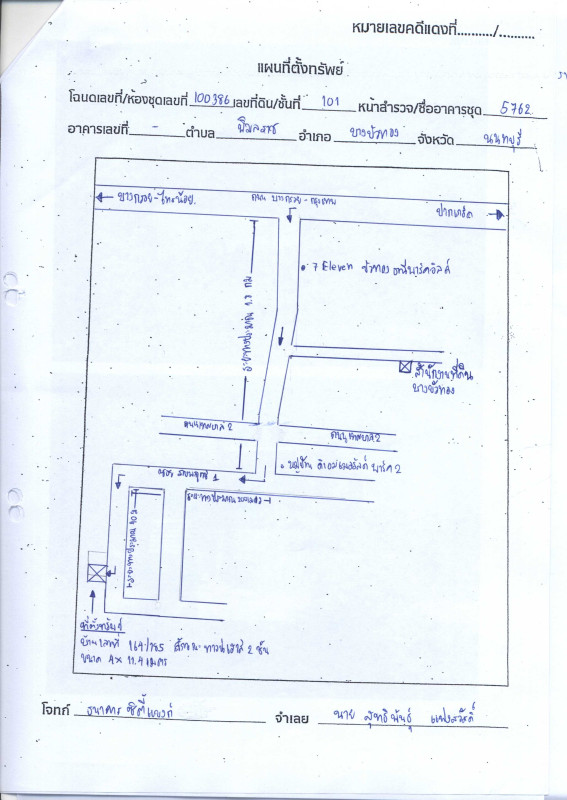 หมายเลขคดีแดงที่........../..........
แผนที่ตั้งทรัพย์
โฉนดเลขที่/ห้องชุดเลขที่ 100386 เลขที่ดิน/ชั้นที่ 101 หน้าสำรวจ/ชื่ออาคารชุด 5762
อาคารเลขที่ - ตำบล พิมลราช อำเภอ บางบัวทอง จังหวัด นนทบุรี
ถนน บางกรวย-
บางกรวย-ไทรน้อย
ปากเกร็ด
7 Eleven
ระยะทางประมาณ 1.7 กม
สำนักงานที่ดิน
บางบัวทอง
ถนนเทศบาล 2
ถนนเทศบาล 2
หมู่บ้าน พาร์ค 2
ซอย 1
ระยะทางประมาณ
ที่ตั้งทรัพย์
บ้านเลขที่ 164/785 ลักษณะ ทาวน์เฮาส์ 2 ชั้น
ขนาด 4 x 11.4 เมตร
โจทก์ ธนาคาร ซิตี้แบงก์ จำเลย นาย สุทธินันธุ์